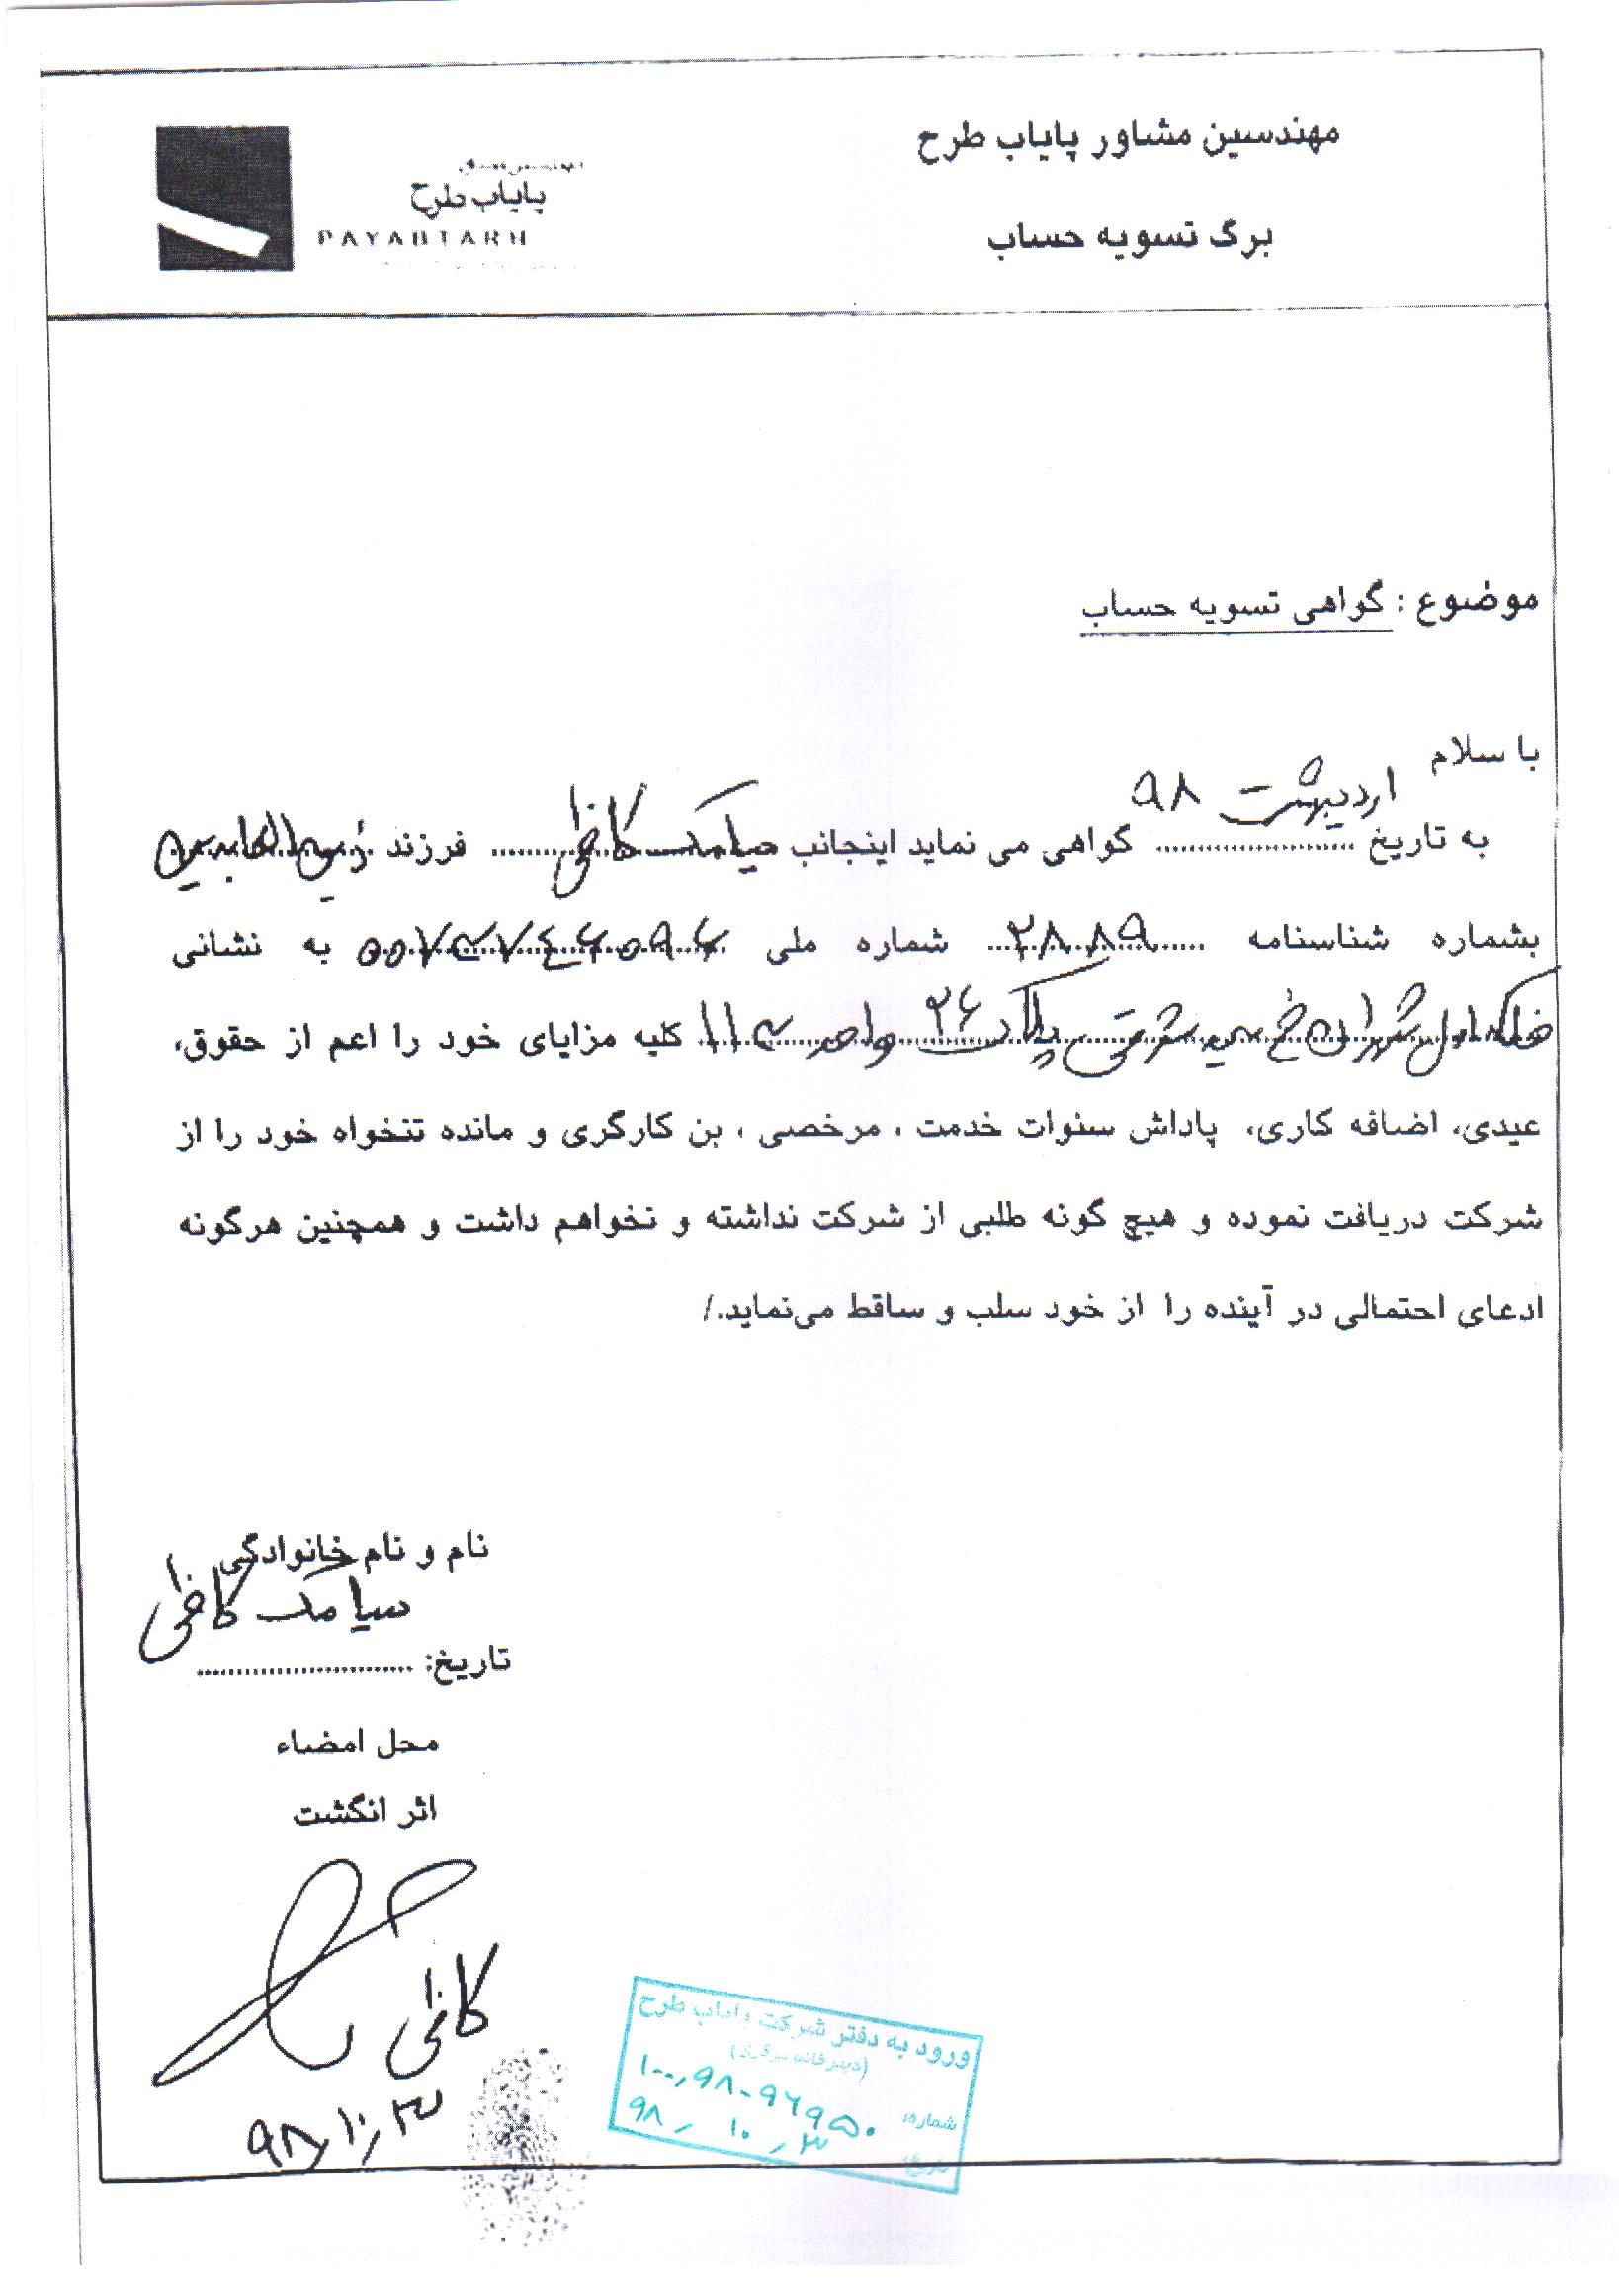 مهندسین مشاور پایاب طرح
برگ تسویه حساب
پایاب طرح
PAYABTARH
موضوع : گواهی تسویه حساب
با سلام
به تاریخ اردیبهشت ۹۸ گواهی می نماید اینجانب سیامک کاظمی فرزند زین العابدین
بشماره شناسنامه ۲۸۸۹ شماره ملی به نشانی
فلکه اول شهران خ پلاک ۲۶ واحد ۱۱۳ کلیه مزایای خود را اعم از حقوق،
عیدی، اضافه کاری، پاداش سنوات خدمت ، مرخصی ، بن کارگری و مانده تنخواه خود را از
شرکت دریافت نموده و هیچ گونه طلبی از شرکت نداشته و نخواهم داشت و همچنین هرگونه
ادعای احتمالی در آینده را از خود سلب و ساقط می‌نماید./
نام و نام خانوادگی
سیامک کاظمی
تاریخ: ............................
محل امضاء
اثر انگشت
کاظمی
۹۸/۱۰/۳
ورود به دفتر شرکت پایاب طرح
(دبیرخانه مرکزی)
شماره: ۱۰۰/۹۸-۹۶۹۵۰
تاریخ: ۹۸/۱۰/۳